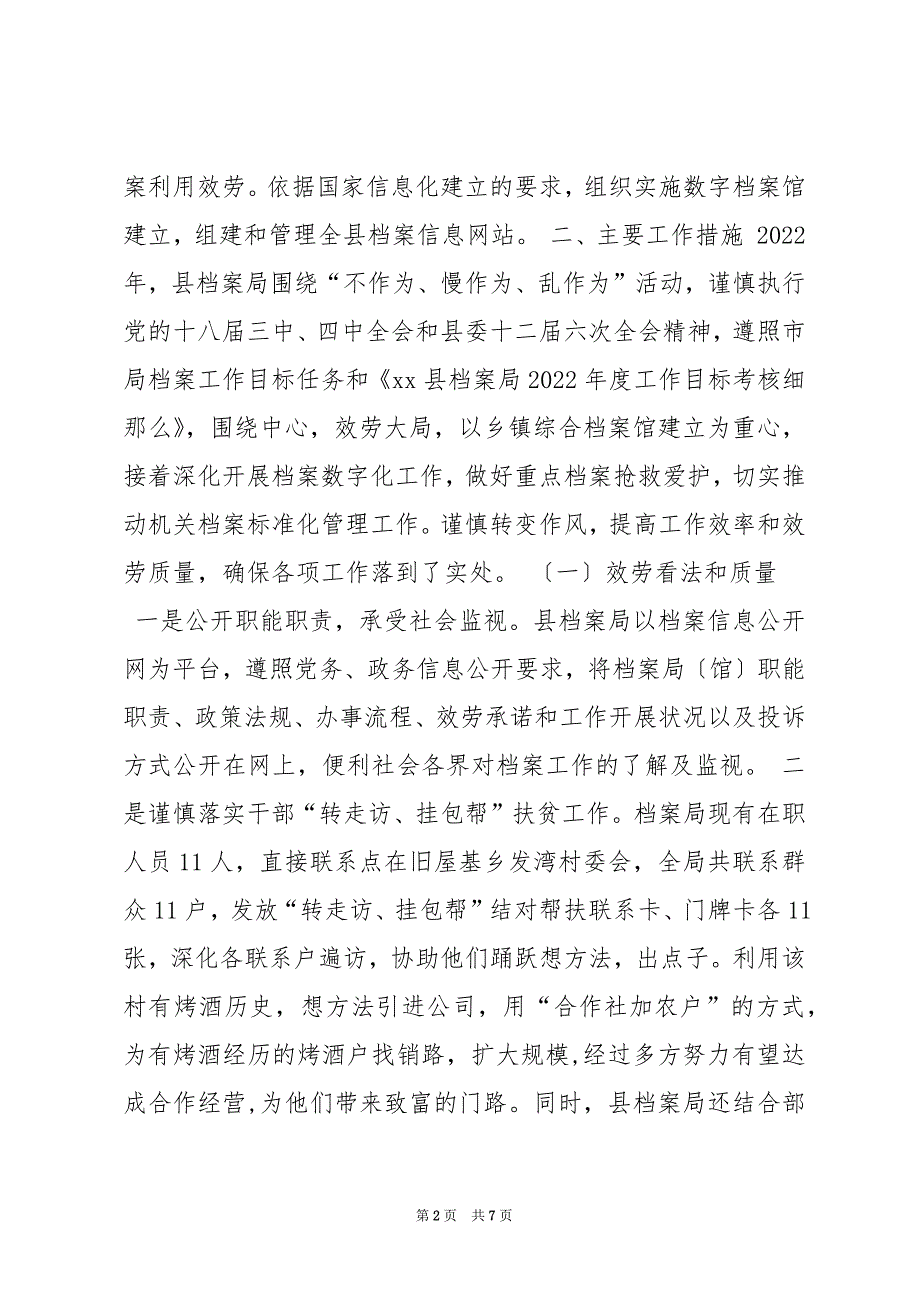 案利用效劳。依据国家信息化建立的要求，组织实施数字档案馆
建立，组建和管理全县档案信息网站。 二、主要工作措施 2022
年，县档案局围绕“不作为、慢作为、乱作为”活动，谨慎执行
党的十八届三中、四中全会和县委十二届六次全会精神，遵照市
局档案工作目标任务和《xx 县档案局 2022 年度工作目标考核细
那么》，围绕中心，效劳大局，以乡镇综合档案馆建立为重心，
接着深化开展档案数字化工作，做好重点档案抢救爱护，切实推
动机关档案标准化管理工作。谨慎转变作风，提高工作效率和效
劳质量，确保各项工作落到了实处。 〔一〕效劳看法和质量
一是公开职能职责，承受社会监视。县档案局以档案信息公开
网为平台，遵照党务、政务信息公开要求，将档案局〔馆〕职能
职责、政策法规、办事流程、效劳承诺和工作开展状况以及投诉
方式公开在网上，便利社会各界对档案工作的了解及监视。 二
是谨慎落实干部“转走访、挂包帮”扶贫工作。档案局现有在职
人员 11 人，直接联系点在旧屋基乡发湾村委会，全局共联系群
众 11 户，发放“转走访、挂包帮”结对帮扶联系卡、门牌卡各 11
张，深化各联系户遍访，协助他们踊跃想方法，出点子。利用该
村有烤酒历史，想方法引进公司，用“合作社加农户”的方式，
为有烤酒经历的烤酒户找销路，扩大规模,经过多方努力有望达
成合作经营,为他们带来致富的门路。同时，县档案局还结合部
第 2 页 共 7 页